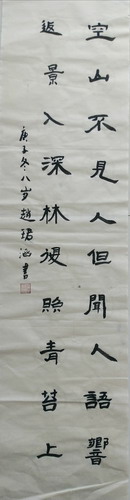 空山不見人但聞人語響
返景入深林復照青苔上
庚子冬八岁趙珺涵書